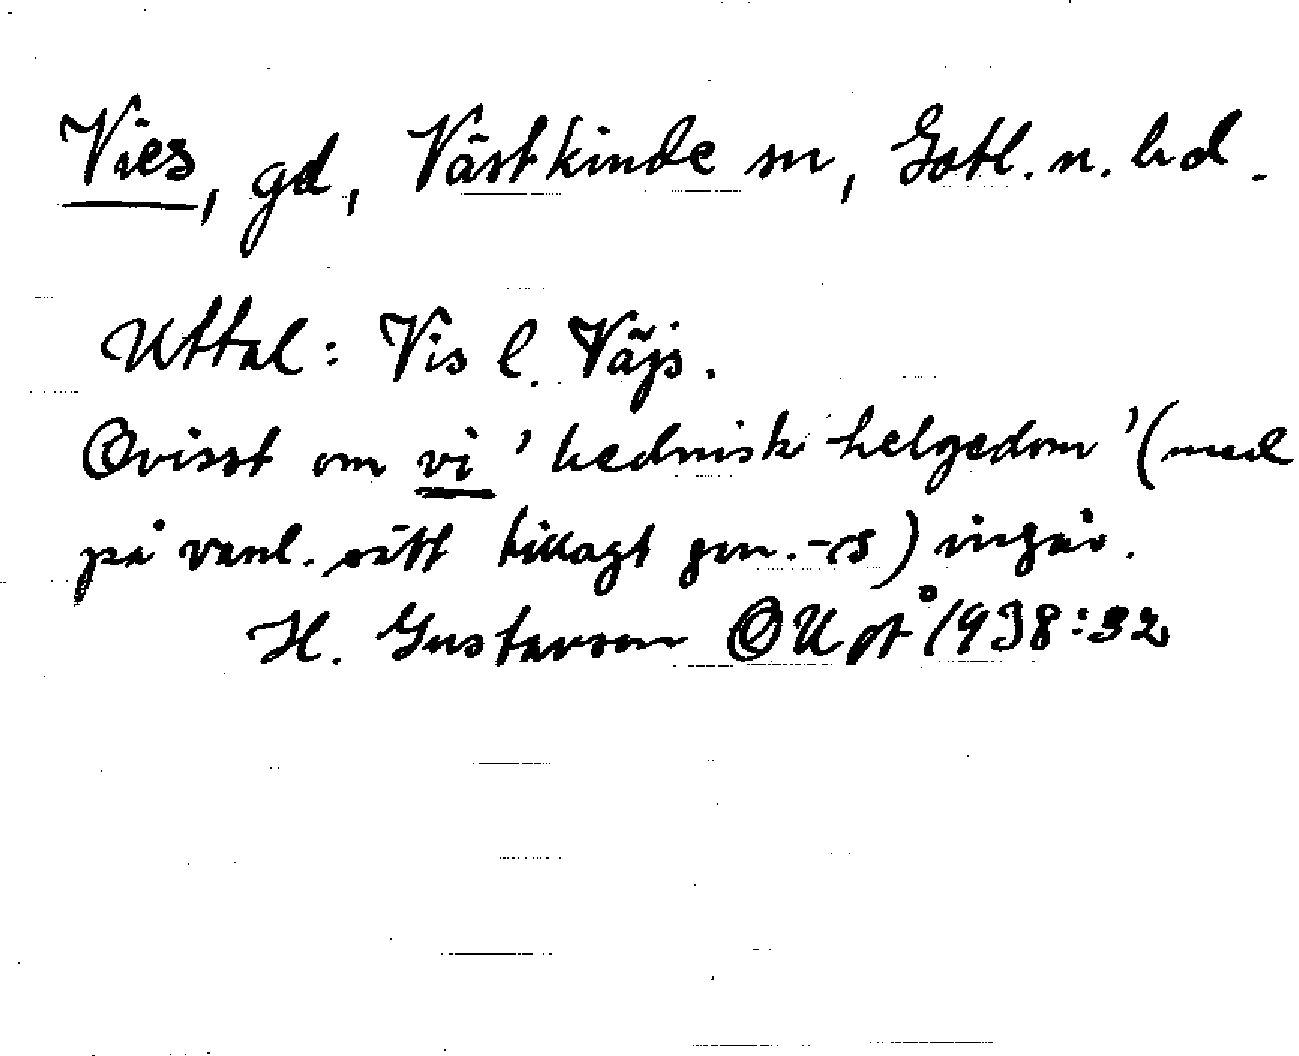 Vies, gd, Västkinde sn, Gotl. n. hd.
Uttal: Vis l. Väjs.
Ovisst om vi 'hednisk helgedom' (med
på vanl. sätt tillagt gen. -s) ingår.
H. Gustavson OUpt 1938:32